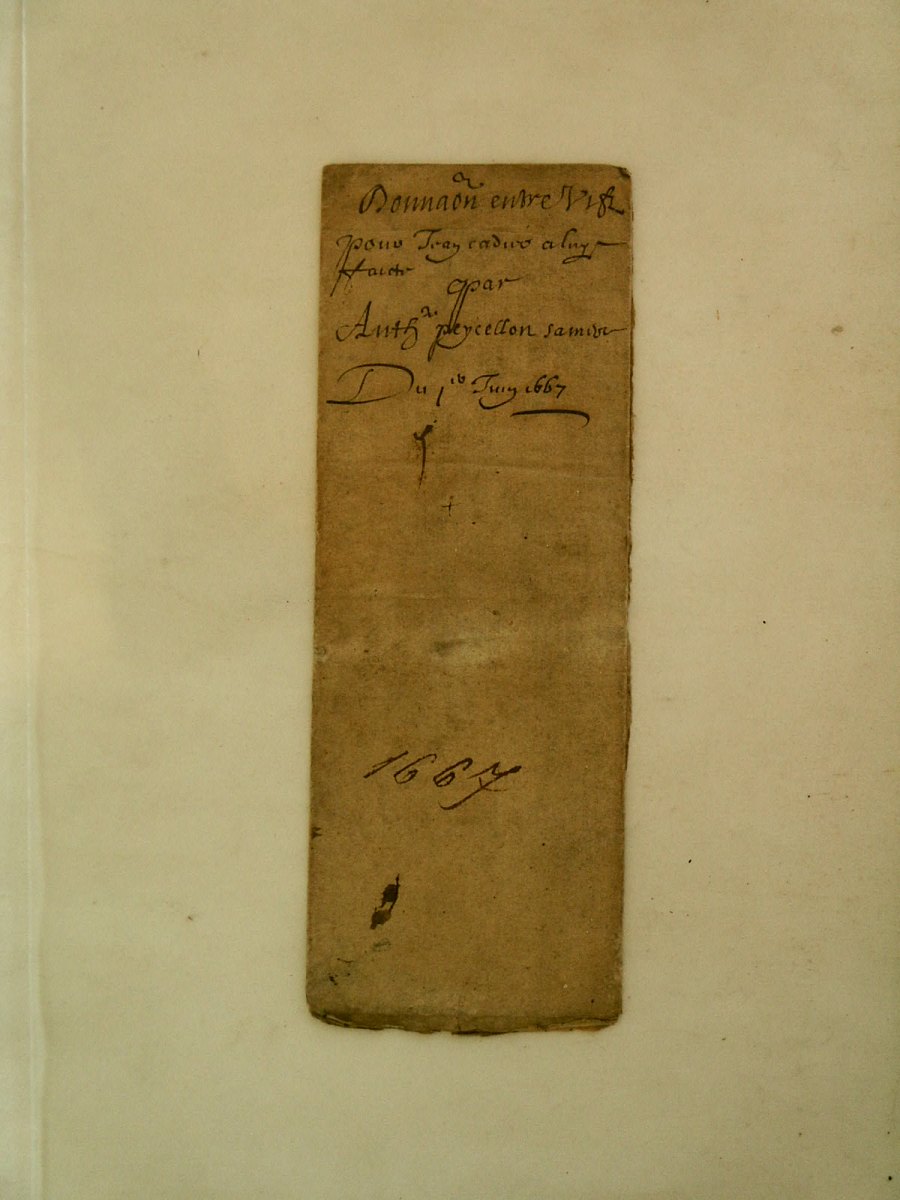 Donnaon entre Vifz
pour Jean cadier a luy
ffaicte
par
Anthe peycellon
Du 1er Juing 1667
1667